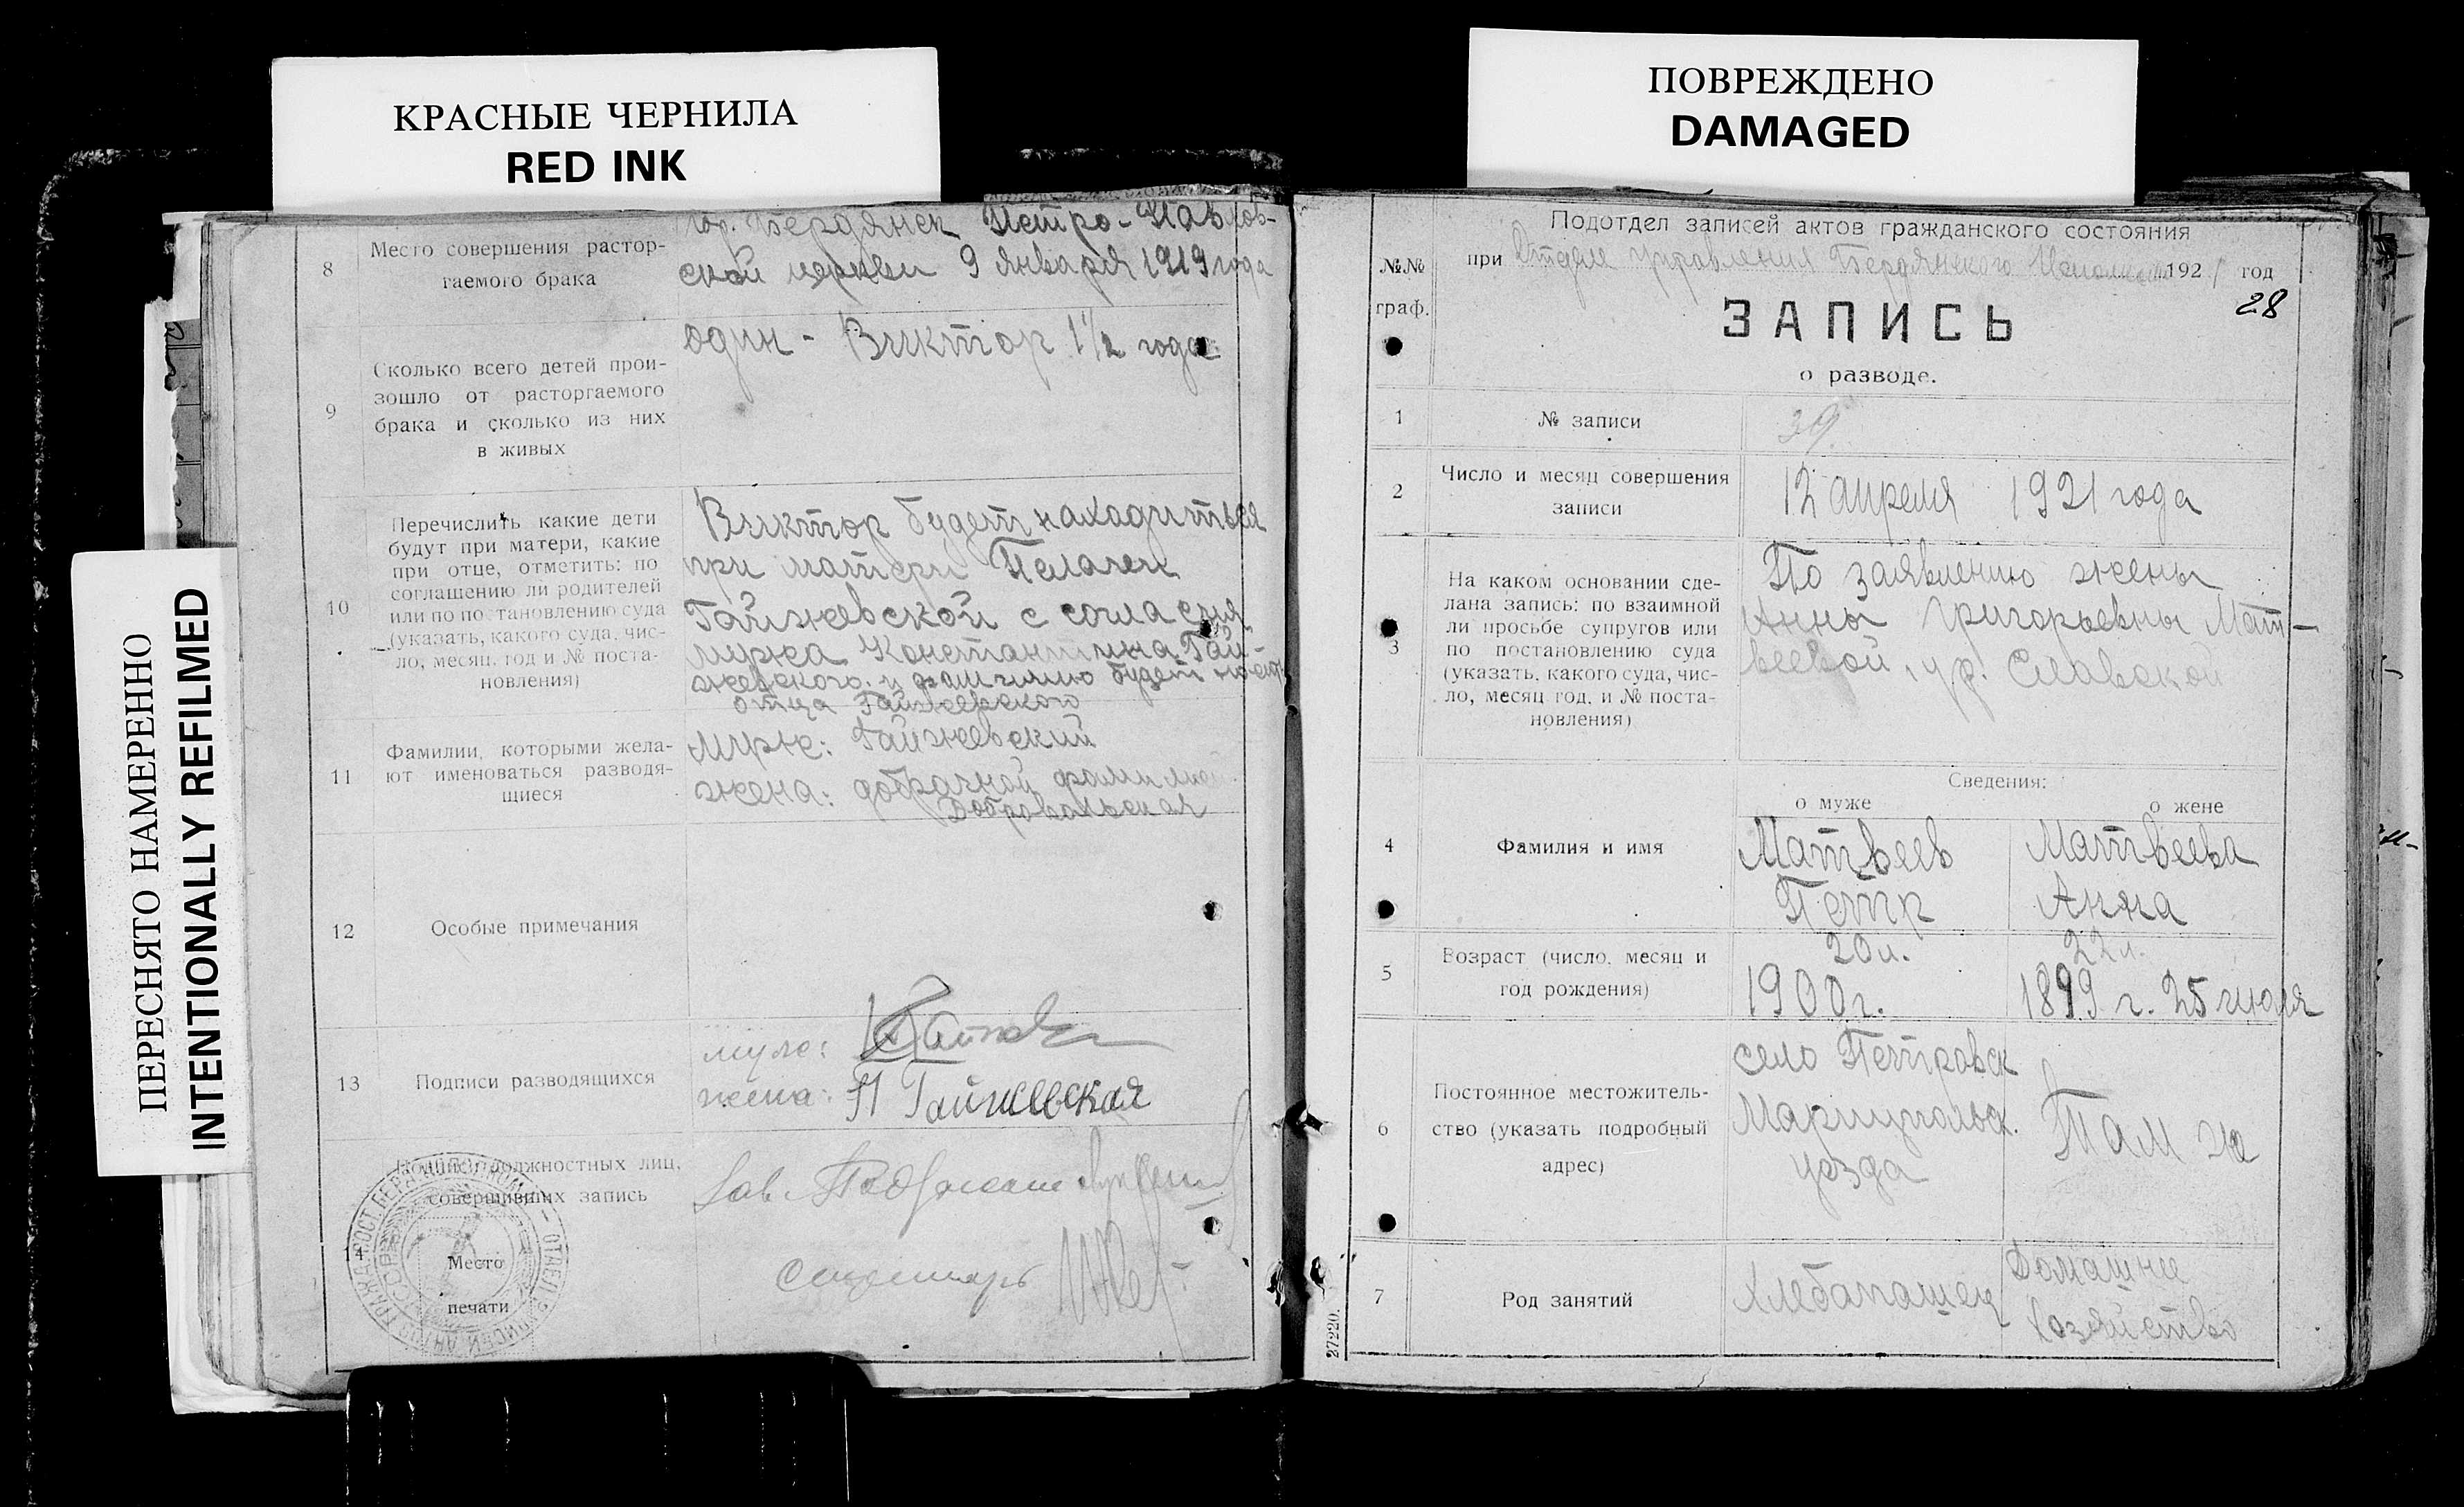 КРАСНЫЕ ЧЕРНИЛА
RED INK
ПОВРЕЖДЕНО
DAMAGED
ПЕРЕСНЯТО НАМЕРЕННО
INTENTIONALLY REFILMED
8
Место совершения растор-
гаемого брака
гор. Бердянск Петро-Павлов-
ской церкви 9 января 1919 года
9
Сколько всего детей прои-
зошло от расторгаемого
брака и сколько из них
в живых
один - Виктор 1 1/2 года
10
Перечислить какие дети
будут при матери, какие
при отце, отметить: по
соглашению ли родителей
или по постановлению суда
(указать, какого суда, чис-
ло, месяц, год и № поста-
новления)
Виктор будет находиться
при матери Пелагеи
Гайжевской с согласия
мужа Константина Гай-
жевского и фамилию будет
отца Гайжевского
11
Фамилии, которыми жела-
ют именоваться разводя-
щиеся
муж: Гайжевский
жена: добрачной фамилией
Добровольская
12
Особые примечания
13
Подписи разводящихся
муж:
жена: П Гайжевская
14
Подписи должностных лиц,
совершивших запись
Зав.
Место
печати
секретарь
№№
граф.
Подотдел записей актов гражданского состояния
при Отделе Управления Бердянского 1921 год
28
ЗАПИСЬ
о разводе.
1
№ записи
39
2
Число и месяц совершения
записи
12 апреля 1921 года
3
На каком основании сде-
лана запись: по взаимной
ли просьбе супругов или
по постановлению суда
(указать, какого суда, чис-
ло, месяц год, и № поста-
новления)
По заявлению жены
Анны Григорьевны Мат-
веевой, ур. Славской
Сведения:
о муже
о жене
4
Фамилия и имя
Матвеев
Петр
Матвеева
Анна
5
Возраст (число, месяц и
год рождения)
20 л.
1900 г.
22 л.
1899 г. 25 июля
6
Постоянное местожитель-
ство (указать подробный
адрес)
село Петровск
Мариупольск.
уезда
Там же
7
Род занятий
Хлебопашец
Домашнее
хозяйство
27220.